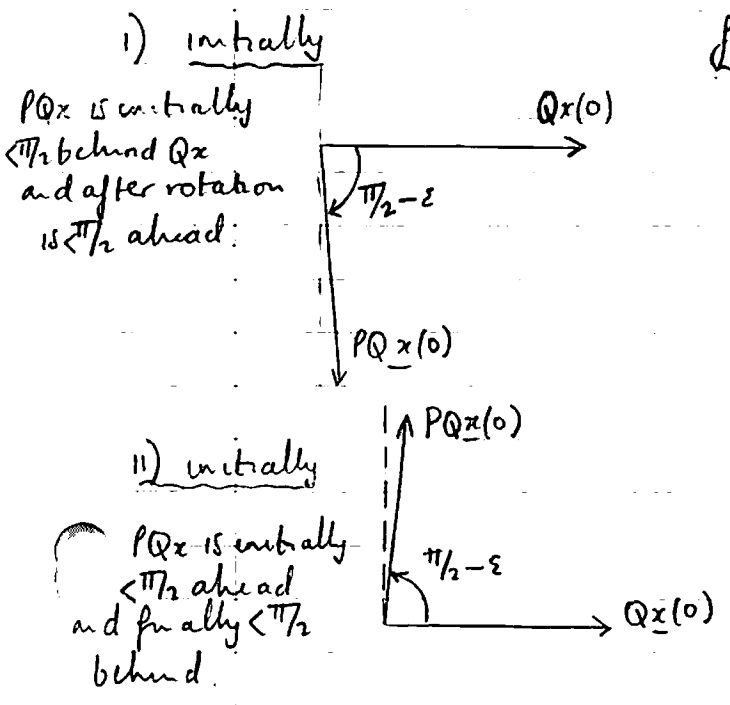 i) initially
PQx is initially
<π/2 behind Qx
and after rotation
is <π/2 ahead:
Qx(0)
π/2-ε
PQx(0)
ii) initially
PQx is initially
<π/2 ahead
and finally <π/2
behind.
PQx(0)
π/2-ε
Qx(0)